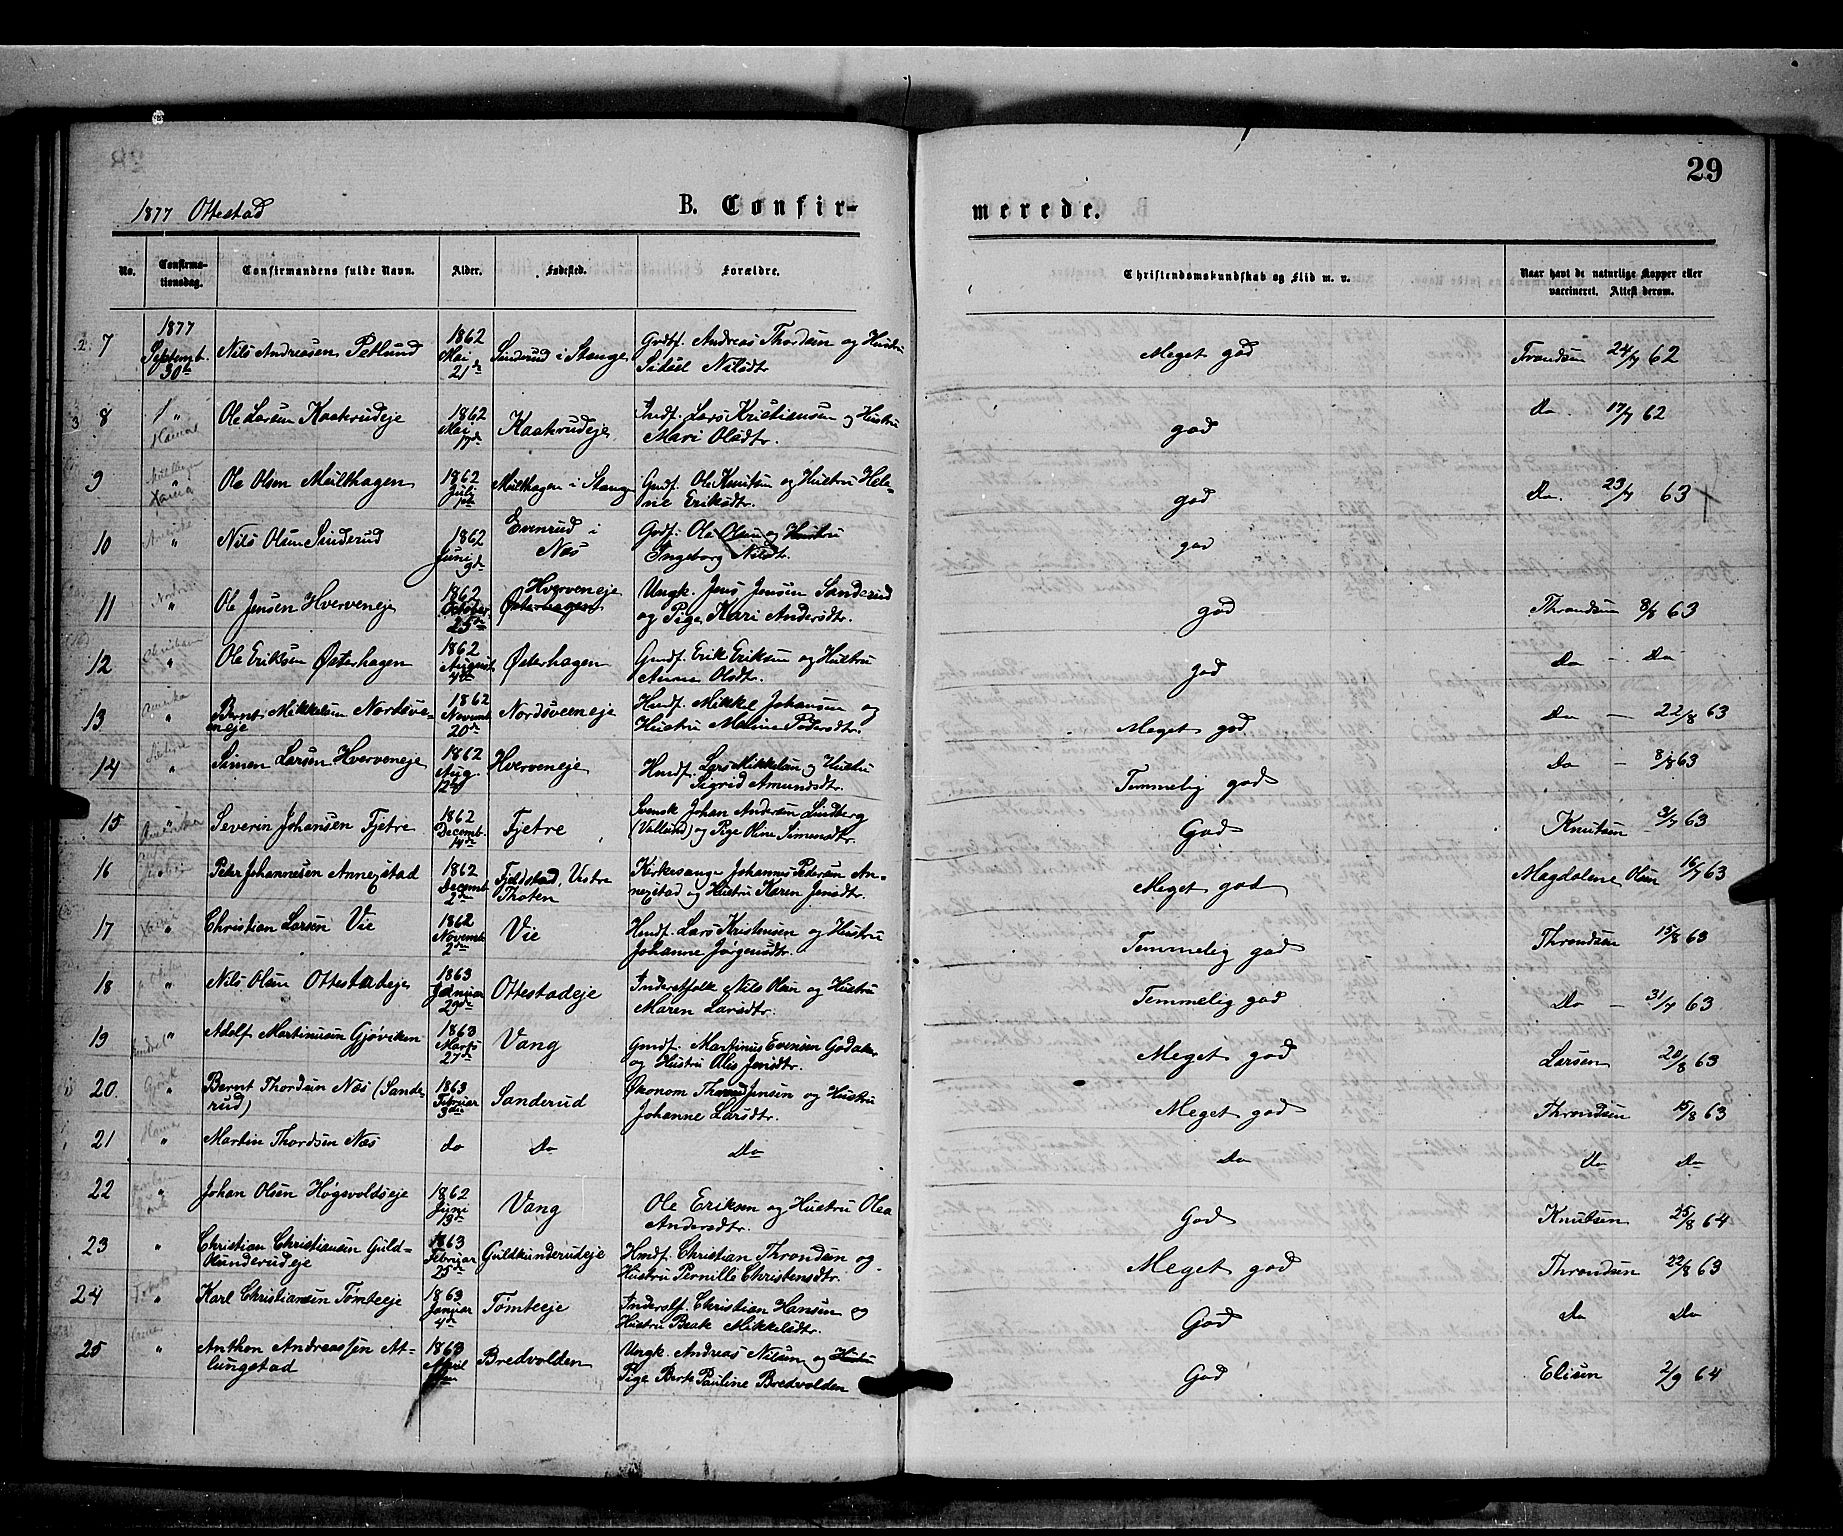 29
1877 Ottestad
B. Confir-
merede.
No.
Confirma-
tionsdag.
Confirmandens fulde Navn.
Alder.
Fødested.
Forældre.
Christendomskundskab og Flid m. v.
Naar havt de naturlige Kopper eller
vaccineret. Attest derom.
7 1877 Septemb. 30te Nils Andreasen Petlund 1862 Mai 21de Sinderud i Stange Gmdf. Andreas Thordsen og Hustru
Sidsel Nilsdtr. Meget god Trondsen 24/7 62
8 " Ole Larsen Kaakrudeje 1862 Mai 17de Kaakrudeje Indf. Lars Kristiansen og Hustru
Mari Olsdtr. god Do. 17/7 62
9 " Ole Olsen Meilthagen 1862 Juli Meilthagen i Stange Gmdf. Ole Knutsen og Hustru Hele-
ne Eriksdtr. god Do. 23/7 63
10 " Nils Olsen Sinderud 1862 Juni 9de Evenrud i
Næs Gmdf. Ole Olsen og Hustru
Ingeborg Nilsdt. god
11 " Ole Jensen Hverveneje 1862 October 25de Hverveneje
Østerhagen Ungk. Jens Jensen Sanderud
og Pige Kari Andersdtr. god Throndsen 8/8 63
12 " Ole Eriksen Østerhagen 1862 August 4de Østerhagen Gmdf. Erik Eriksen og Hustru
Anne Olsdtr. god Do - Do
13 " Bernt Mikkelsen Nordsve-
eneje 1862 Novemb. 20de Nordsveeneje Hmdf. Mikkel Johansen og
Hustru Maline Pedersdtr. Meget god Do - 22/8 63
14 " Simen Larsen Hverveneje 1862 Aug. 12te Hverveneje Hmdf. Lars Mikkelsen og Hustru
Sigrid Amundsdtr. Temmelig god Do - 8/8 63
15 " Severin Johansen Fjetre 1862 Decemb. 14de Fjetre Svensk Johan Andersen Lindberg
(Vallund) og Pige Oline Simensdtr. God Knutsen 3/7 63
16 Peter Johannesen Annexstad 1862 Decemb 2den Fjeldstad, Vestre
Thoten Kirkesanger Johannes Pedersen An-
nexstad og Hustru Karen Jensdtr. Meget god Magdalene Olsen 16/7 63
17 " Christian Larsen Vie 1862 Novemb. 2den Vie Hmdf. Lars Kristensen og Hustru
Johanne Jørgensdtr. Temmelig god Throndsen 15/8 63
18 " Nils Olsen Ottestadeje 1863 Januar 29de Ottestadeje Inderstfolk Nils Olsen og Hustru
Maren Larsdtr. Temmelig god Do - 31/7 63
19 " Adolf Martinusen Gjøviken 1863 Marts 27de Vang Gmdf. Martinus Evensen Godaker
og Hustru Olia Jensdtr. Meget god Larsen 20/8 63
20. " Bernt Thordsen Næs (Sande-
rud) 1863 Februar 3die Sanderud Økonom Thord Jensen og Hustru
Johanne Larsdtr. Meget god Throndsen 15/8 63
21 " Martin Thordsen Næs do Do Do Do Do Do
22 " Johan Olsen Høgsvoldseje 1862 Juni 13de Vang Ole Eriksen og Hustru Olea
Andersdtr. God Knutsen 25/8 64
23 " Christian Christiansen Guld-
kunderudeje 1863 Februar 25de Guldkunderudeje Hmdf. Christian Throndsen og
Hustru Pernille Christensdtr. Meget god Throndsen 22/8 63
24 " Karl Christiansen Tømteeje 1863 Januar 4de Tømteeje Inderstf. Christian Hansen og
Hustru Beate Mikkelsdtr. God Do Do
25 " Anthon Andreassen At-
lungstad 1863 April Bredvolden Ungk. Andreas Nilsen og Hustru
Pige Berte Pauline Bredvolden God Elisen 2/9 64